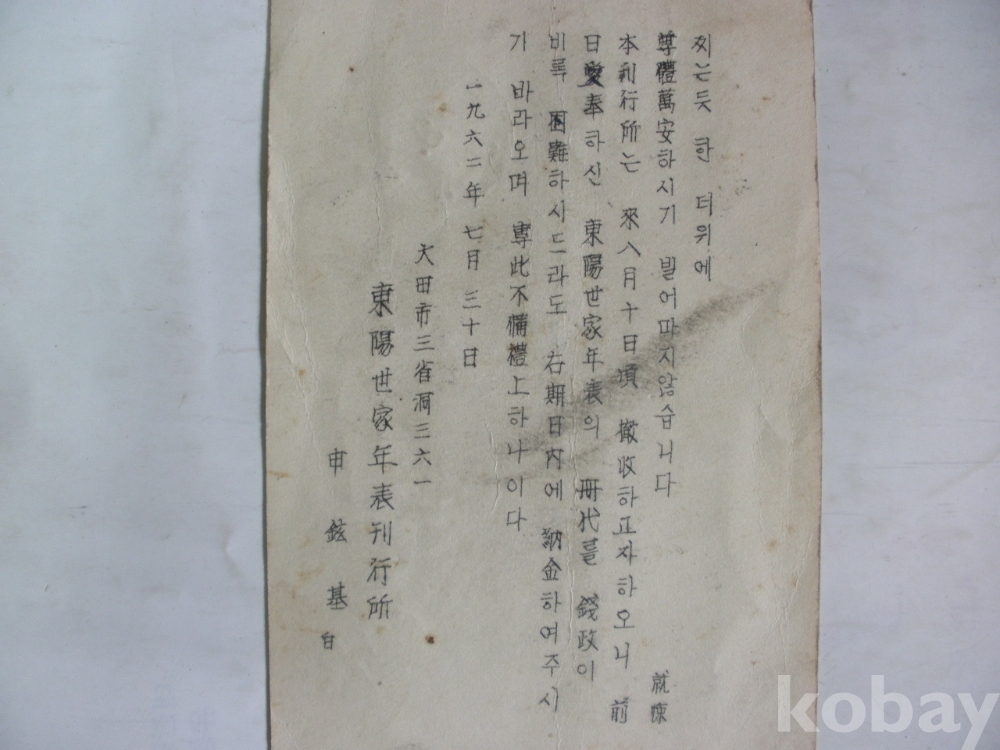 찌는듯 한 더위에
尊體萬安하시기 빌어마지않습니다 就陳
本刊行所는 來八月十日頃 撤收하고자하오니 前
日愛奉하신 東陽世家年表의 冊代를 錢政이
비록 困難하시드라도 右期日內에 納金하여주시
기 바라오며 專此不備禮上하나이다
一九六二年 七月 三十日
大田市三省洞三六一
東陽世家年表刊行所
申 鉉 基 白
kobay